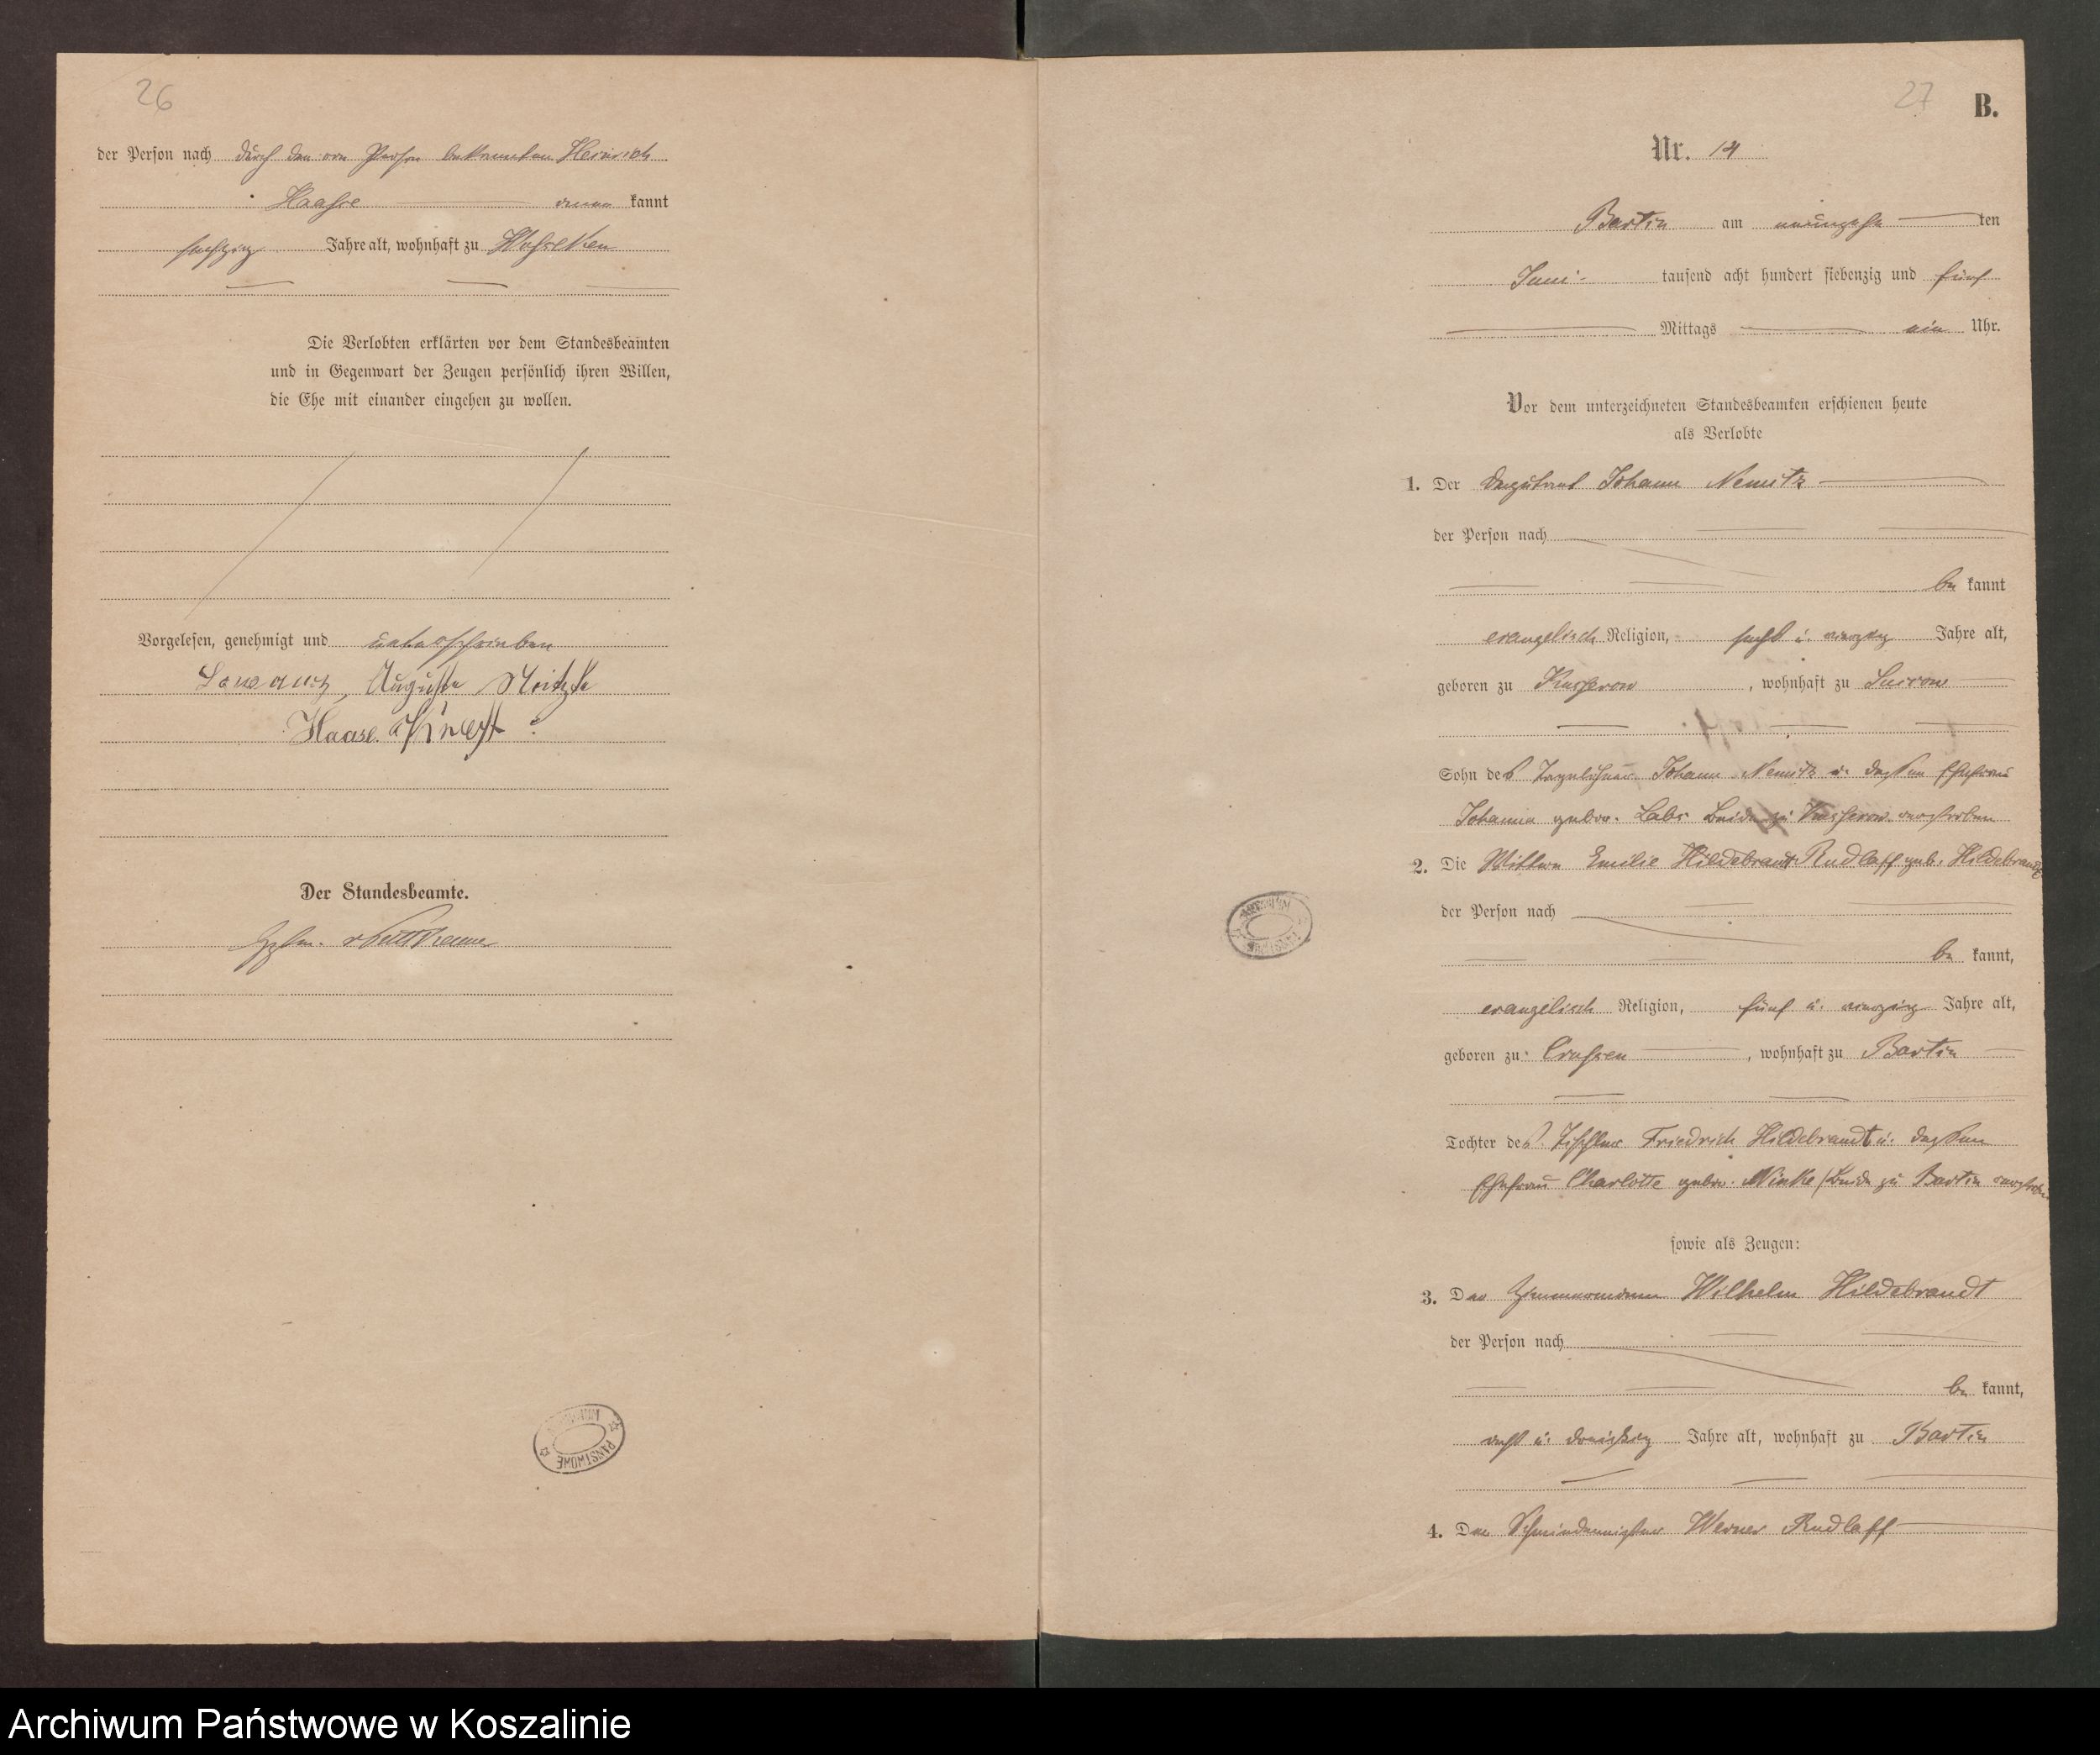 26
der Person nach durch den von Person bekannten Heinrich
Haase kannt
sechzig Jahre alt, wohnhaft zu
Die Verlobten erklärten vor dem Standesbeamten
und in Gegenwart der Zeugen persönlich ihren Willen,
die Ehe mit einander eingehen zu wollen.
Vorgelesen, genehmigt und unterschrieben
Auguste
Haase.
Der Standesbeamte.
27
B.
Nr. 14
Bartin am neunzehn ten
Juni tausend acht hundert siebenzig und fünf
Mittags ein Uhr.
Vor dem unterzeichneten Standesbeamten erschienen heute
als Verlobte
1. Der Johann Nemitz
der Person nach
be kannt
evangelisch Religion, sechs u. vierzig Jahre alt,
geboren zu Kusserow, wohnhaft zu Surrow
Sohn des Tagelöhner Johann Nemitz u. dessen Ehefrau
Johanna gebor. Labs Beide zu Kusserow verstorben
2. Die Wittwe Emilie Hildebrandt Rudlaff geb. Hildebrandt
der Person nach
be kannt,
evangelisch Religion, fünf u. vierzig Jahre alt,
geboren zu Crussen, wohnhaft zu Bartin
Tochter des Tischler Friedrich Hildebrandt u. dessen
Ehefrau Charlotte gebor. Minke Beide zu Bartin verstorben
sowie als Zeugen:
3. Der Zimmermann Wilhelm Hildebrandt
der Person nach
be kannt,
acht u. dreißig Jahre alt, wohnhaft zu Bartin
4. Der Schmiedemeister Werner Rudlaff
ARCHIWUM PAŃSTWOWE
Archiwum Państwowe w Koszalinie